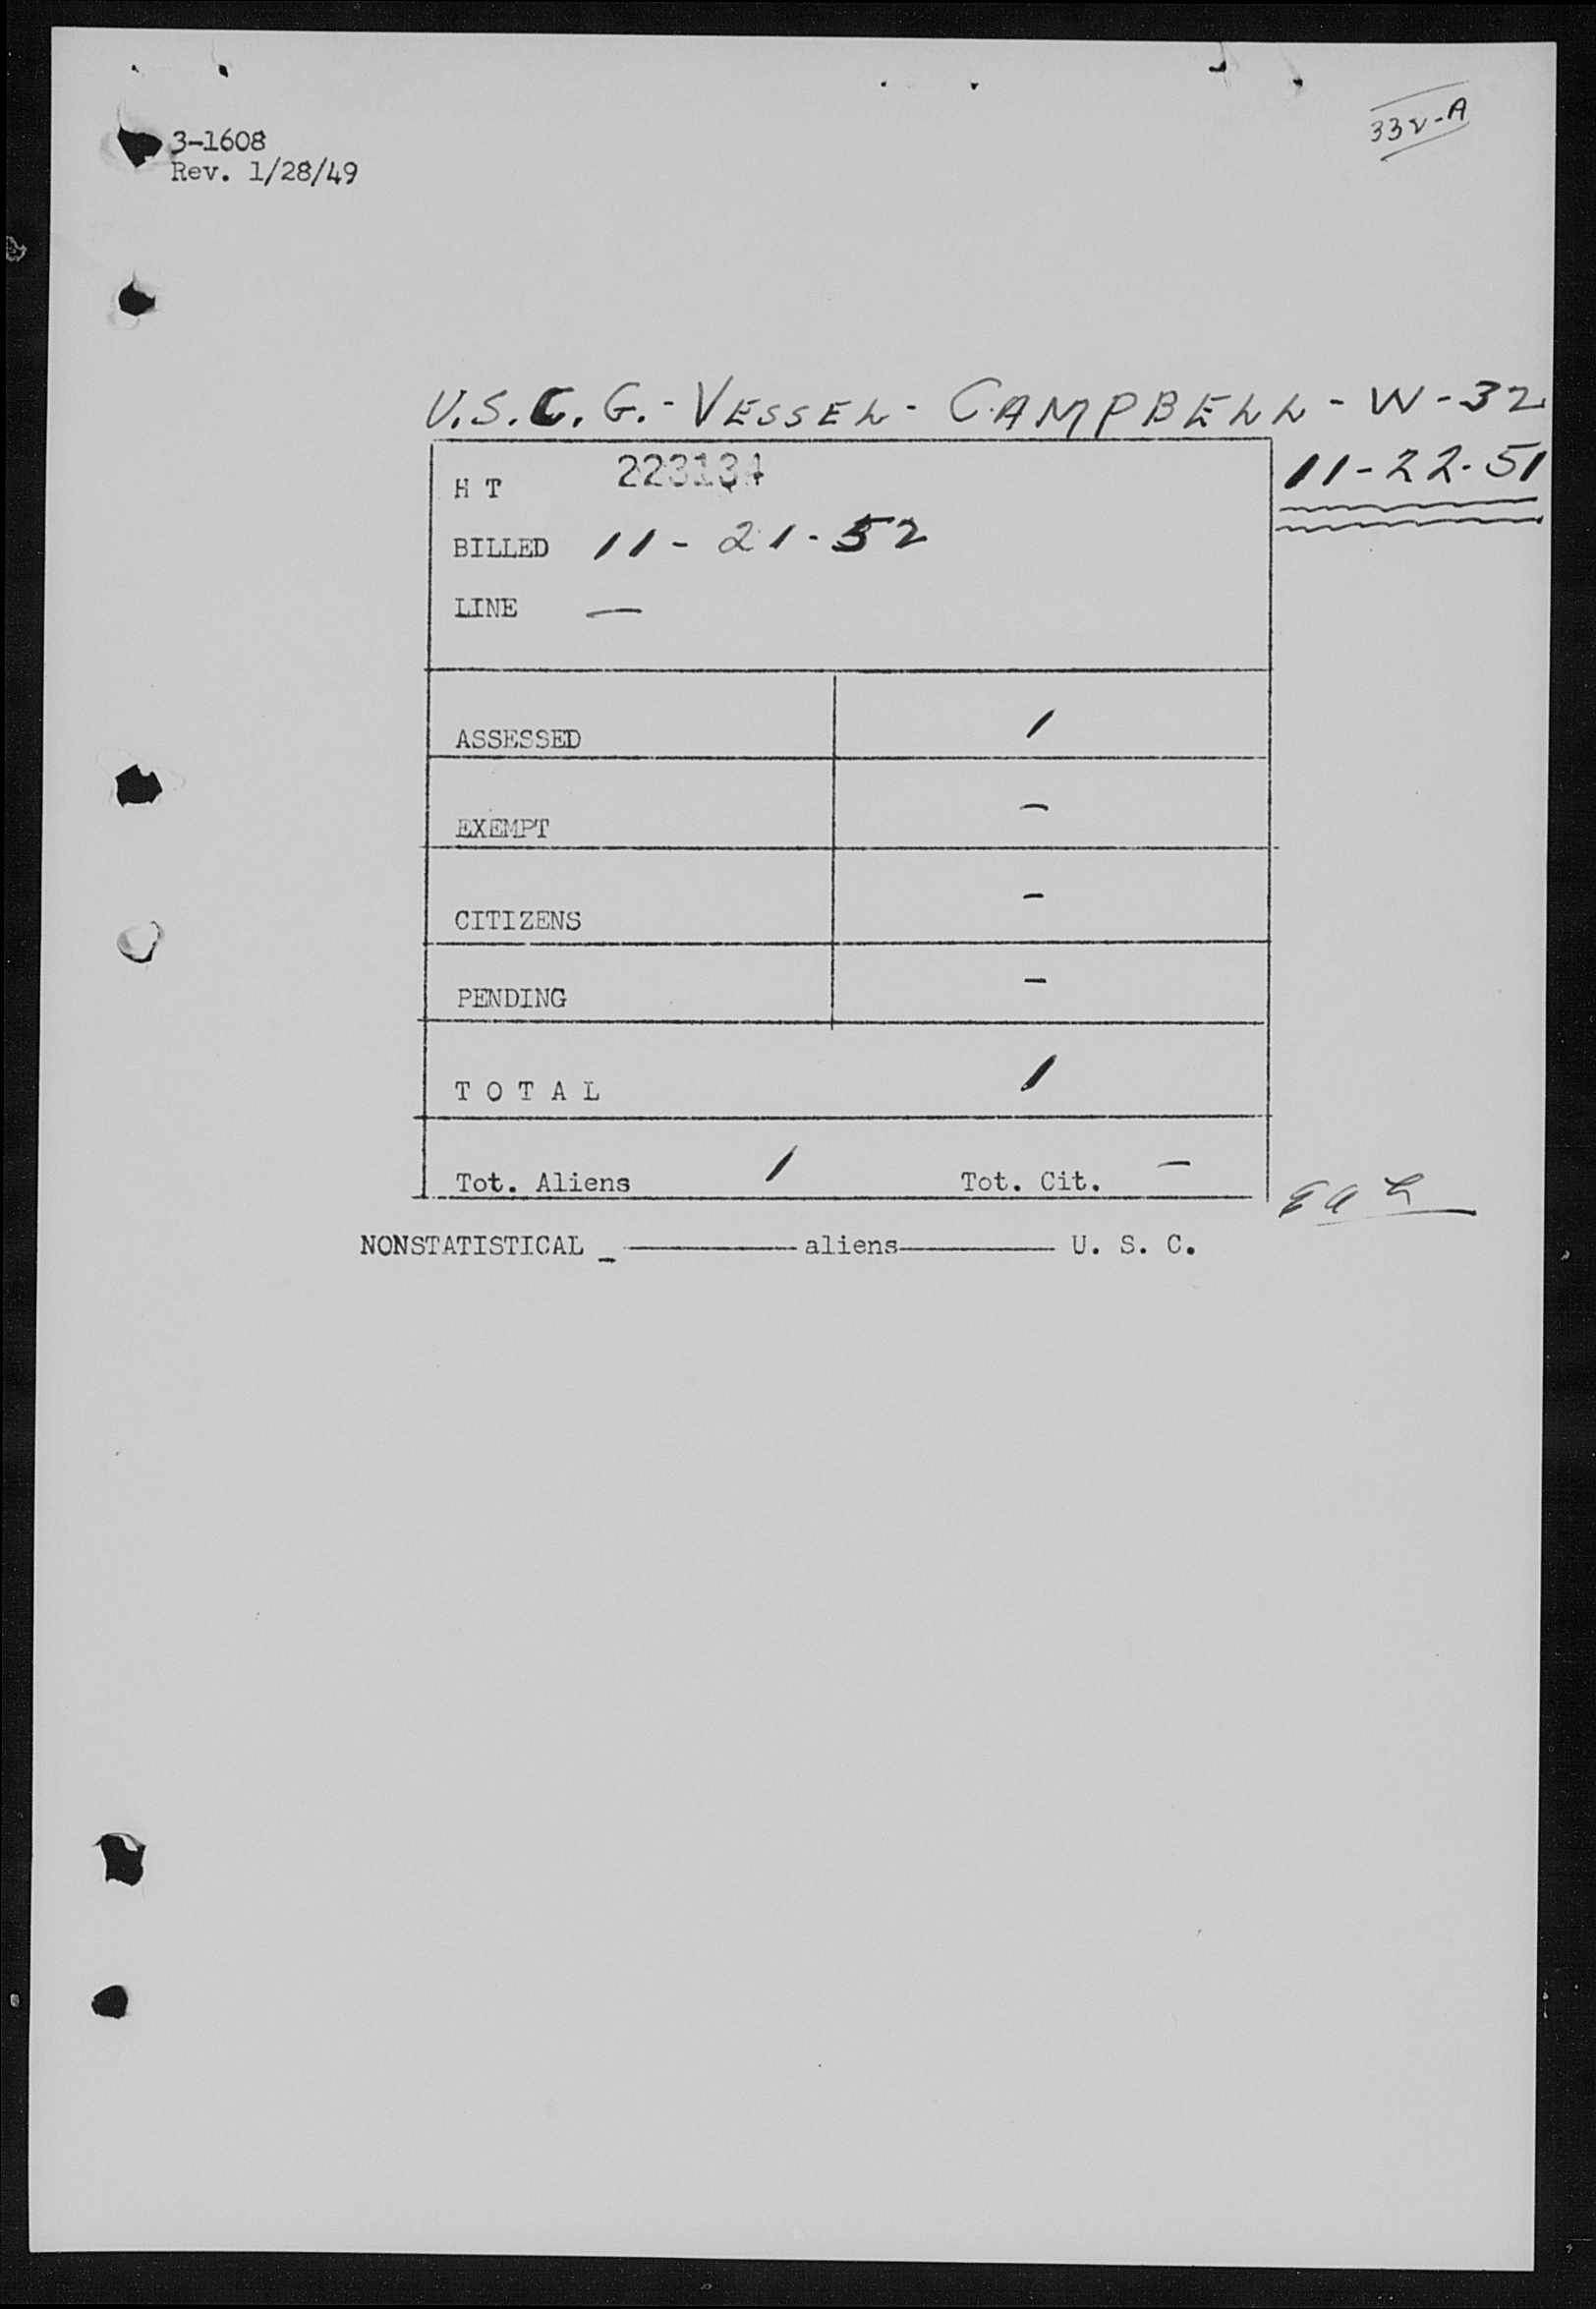 332-A
3-1608
Rev. 1/28/49
U.S.C.G.-VESSEL-CAMPBELL-W-32
11-22-51
H T 223134
BILLED 11-21-52
LINE —
ASSESSED 1
EXEMPT -
CITIZENS -
PENDING -
T O T A L 1
Tot. Aliens 1 Tot. Cit. -
NONSTATISTICAL - ——— aliens ——— U. S. C.